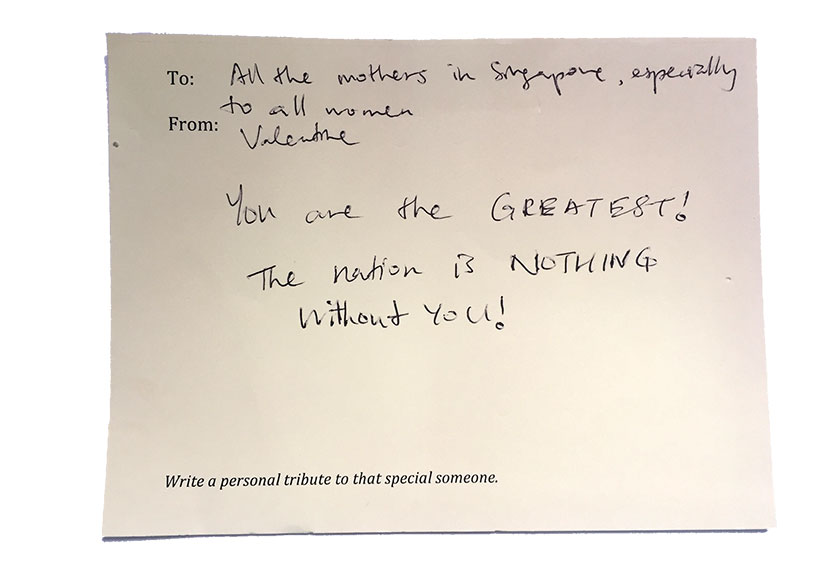 To: All the mothers in Singapore, especially
to all women
From: Valentine
You are the GREATEST!
The nation is NOTHING
Without YOU!
Write a personal tribute to that special someone.